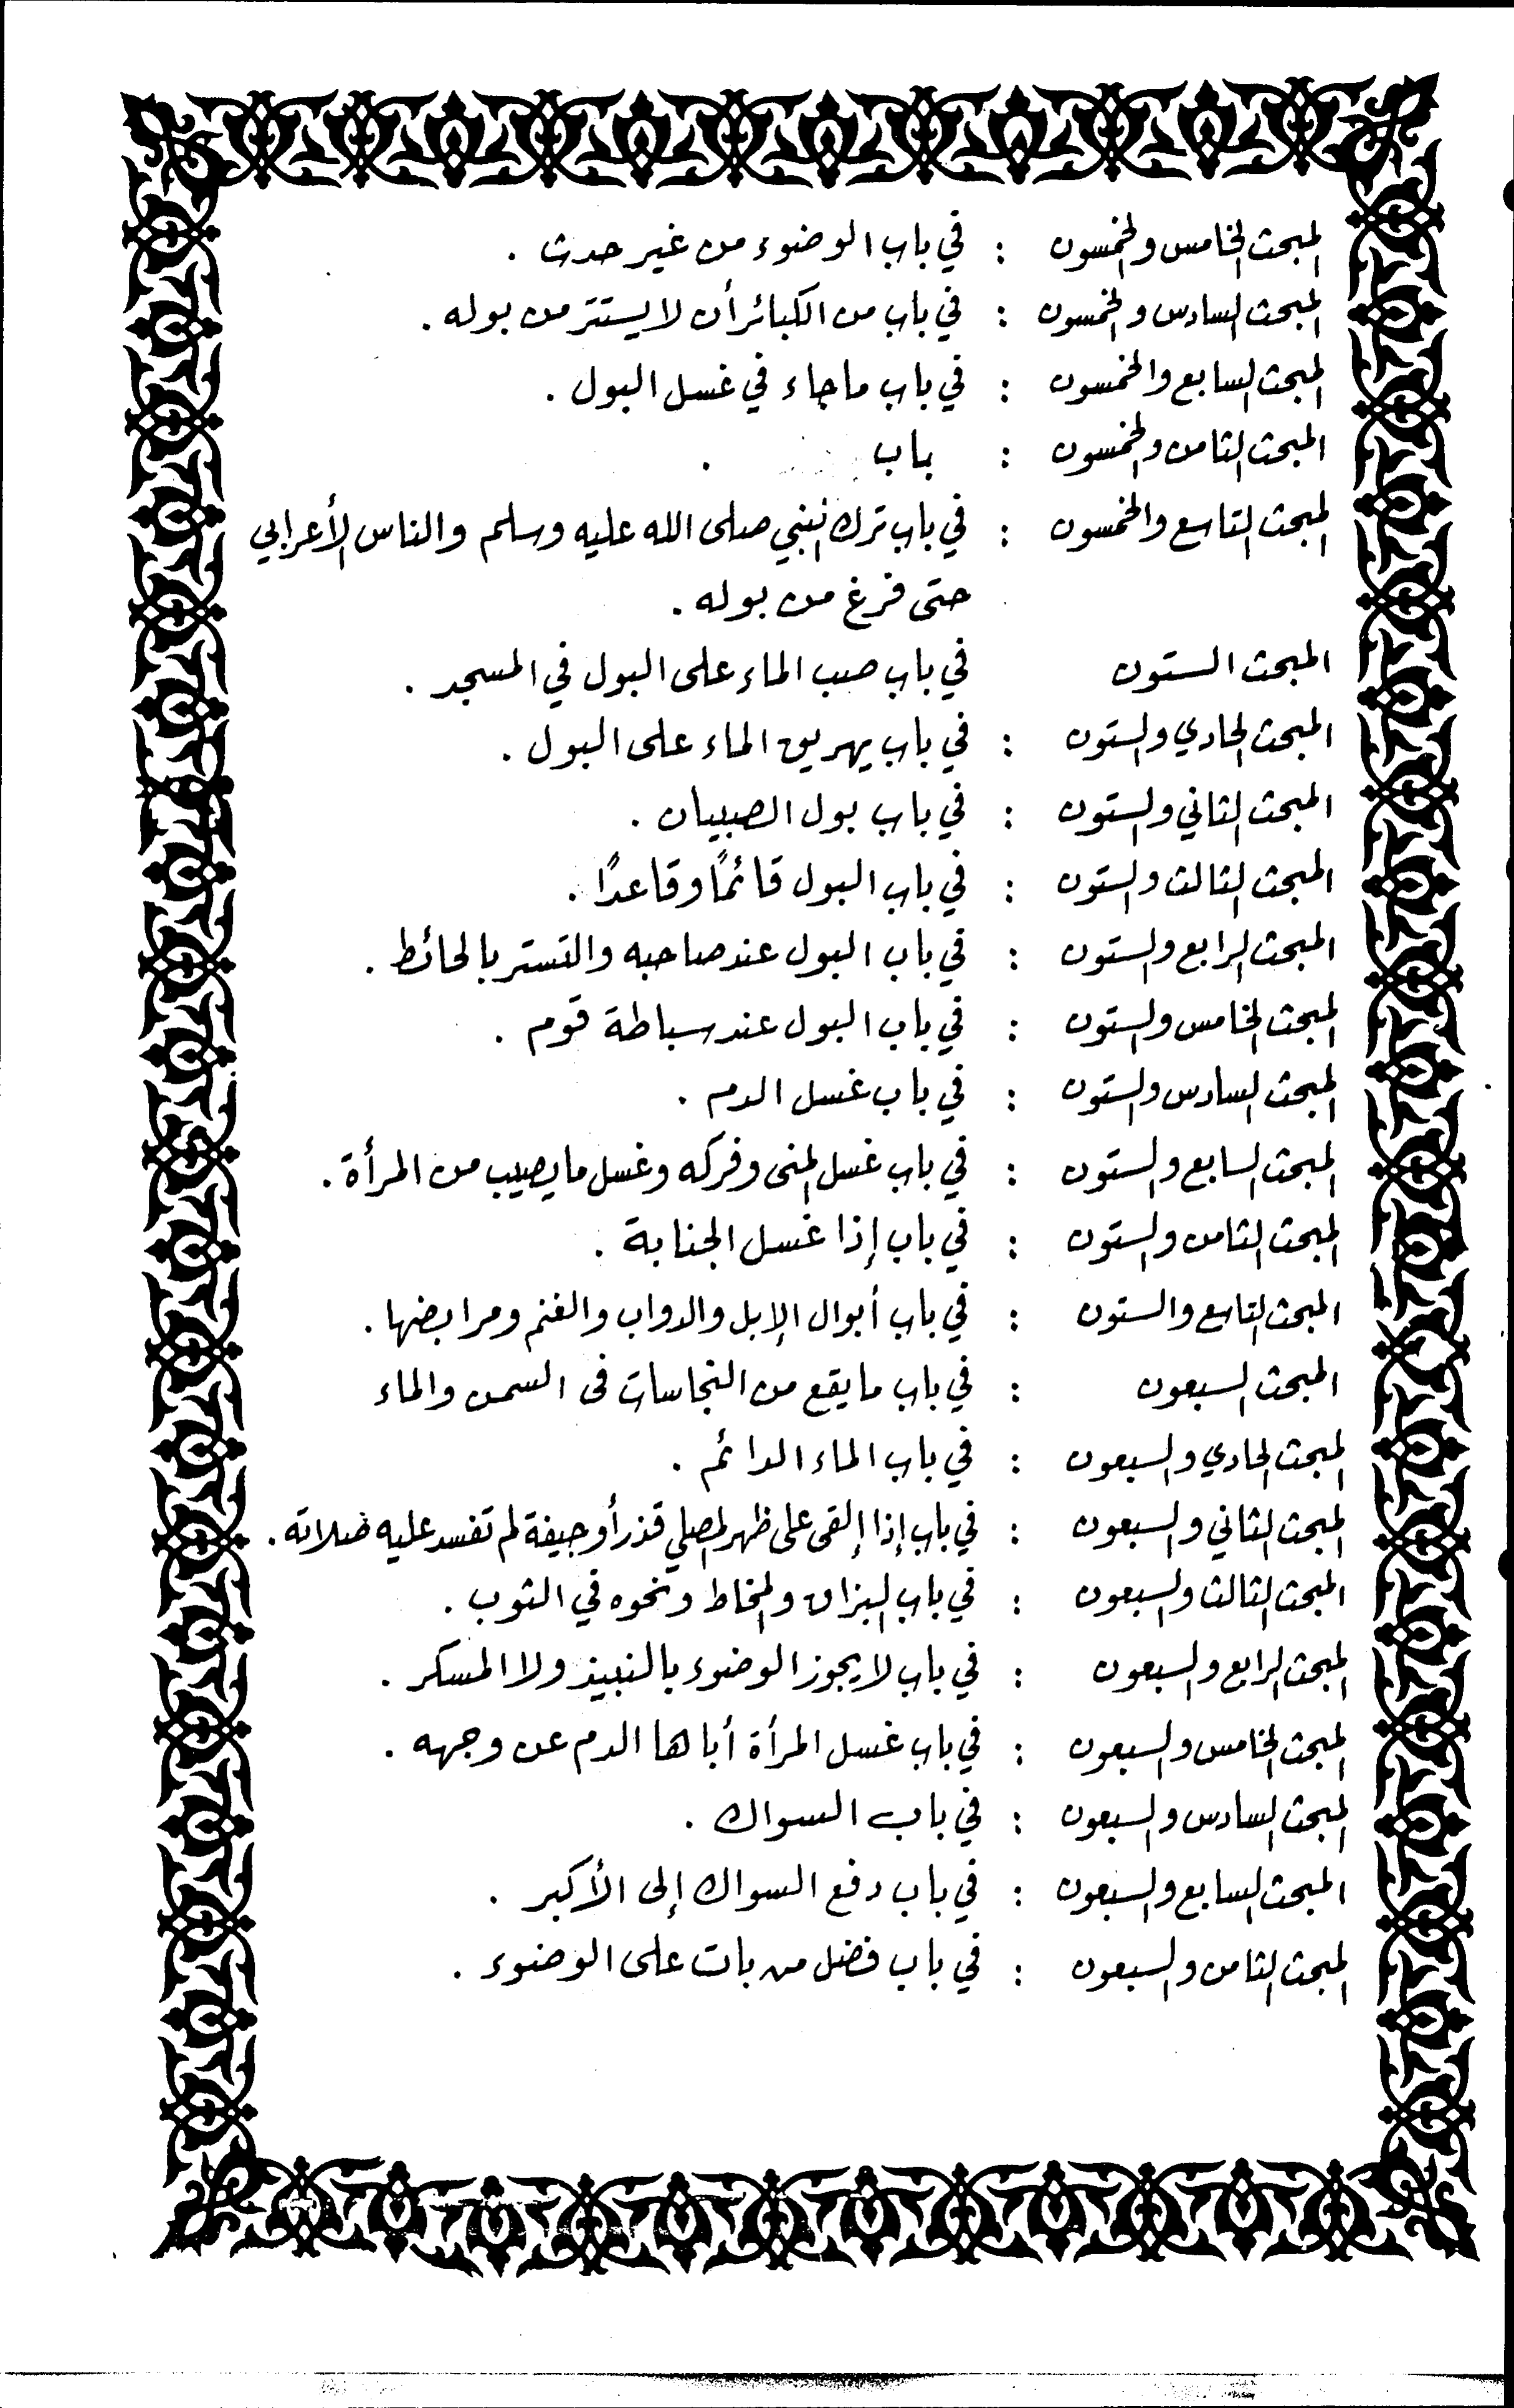 المبحث الخامس والخمسون : في باب الوضوء من غير حدث .
المبحث السادس والخمسون : في باب من الكبائر أن لا يستتر من بوله .
المبحث السابع والخمسون : في باب ما جاء في غسل البول .
المبحث الثامن والخمسون : باب .
المبحث التاسع والخمسون : في باب ترك النبي صلى الله عليه وسلم والناس الأعرابي
حتى فرغ من بوله .
المبحث الستون في باب صب الماء على البول في المسجد .
المبحث الحادي والستون : في باب يهريق الماء على البول .
المبحث الثاني والستون : في باب بول الصبيان .
المبحث الثالث والستون : في باب البول قائمًا وقاعدًا .
المبحث الرابع والستون : في باب البول عند صاحبه والتستر بالحائط .
المبحث الخامس والستون : في باب البول عند سباطة قوم .
المبحث السادس والستون : في باب غسل الدم .
المبحث السابع والستون : في باب غسل المنى وفركه وغسل ما يصيب من المرأة .
المبحث الثامن والستون : في باب إذا غسل الجنابة .
المبحث التاسع والستون : في باب أبوال الإبل والدواب والغنم ومرابضها .
المبحث السبعون : في باب ما يقع من النجاسات فى السمن والماء
المبحث الحادي والسبعون : في باب الماء الدائم .
المبحث الثاني والسبعون : في باب إذا إلقى على ظهر المصلي قذر أو جيفة لم تفسد عليه صلاته .
المبحث الثالث والسبعون : في باب البزاق والمخاط ونحوه في الثوب .
المبحث الرابع والسبعون : في باب لا يجوز الوضوء بالنبيذ ولا المسكر .
المبحث الخامس والسبعون : في باب غسل المرأة أباها الدم عن وجهه .
المبحث السادس والسبعون : في باب السواك .
المبحث السابع والسبعون : في باب دفع السواك إلى الأكبر .
المبحث الثامن والسبعون : في باب فضل من بات على الوضوء .